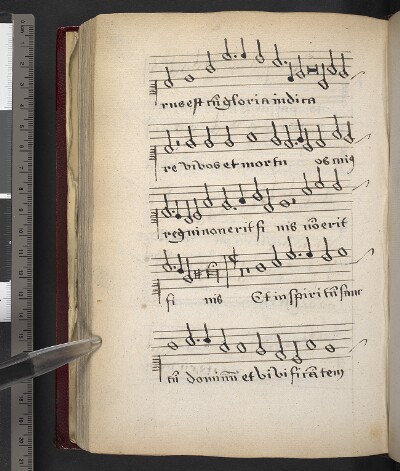 rus est cū gloria iudica
re vivos et mortu os cuiꝰ
regni non erit fi nis nō erit
fi nis Et in spiritū sanc
tū dominū et vivificātem